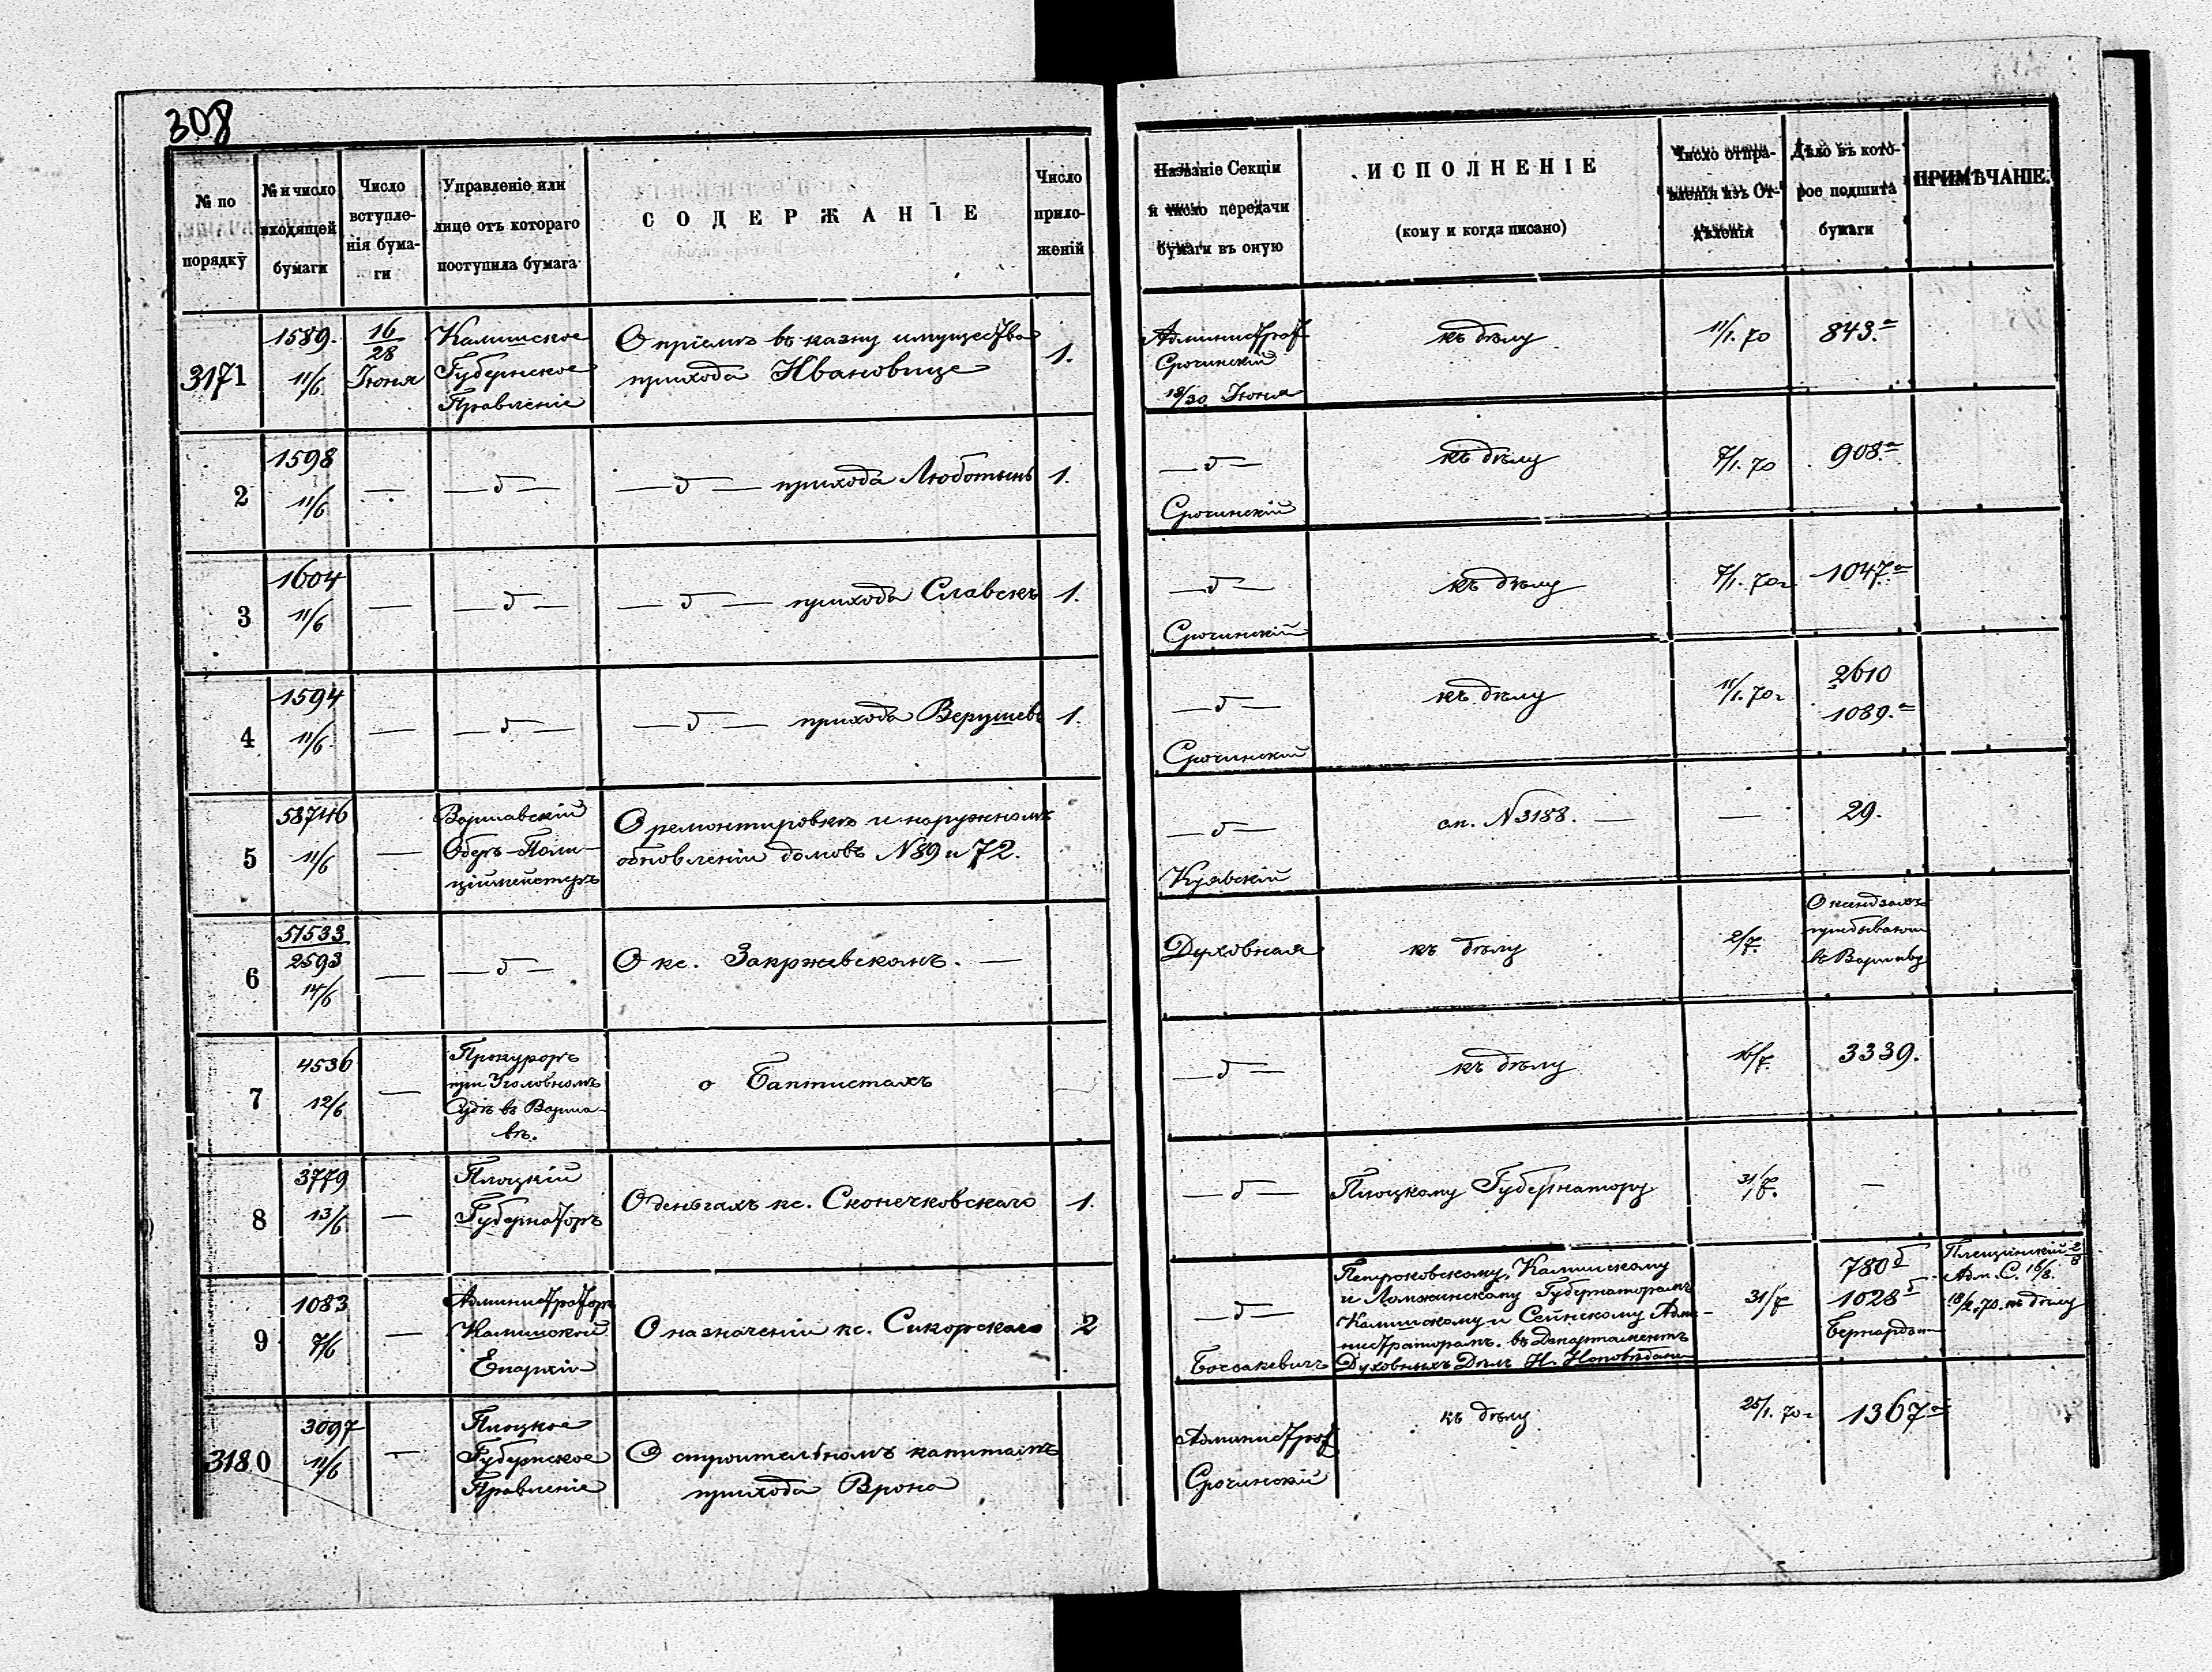 308
№ по порядку
№ и число входящей бумаги
Число вступленія бумаги
Управленіе или лице отъ котораго поступила бумага
СОДЕРЖАНІЕ
Число приложеній
Названіе Секціи и число передачи бумаги въ оную
ИСПОЛНЕНІЕ
(кому и когда писано)
Число отправленія изъ Отдѣленія
Дѣло въ которое подшита бумаги
ПРИМѢЧАНІЕ.
3171
1589.
11/6.
16/28
Іюня
Калишское
Губернское
Правленіе
О пріемѣ въ казну имущества
прихода Ивановице
1.
Администрат
Срочинскій
18/30 Іюня
къ дѣлу
11/1. 70
843.а
2
1598
11/6
—
— д —
— д — прихода Люботынь
1.
— д —
Срочинскій
къ дѣлу
7/1. 70
908.а
3
1604
11/6
—
— д —
— д — прихода Славскъ
1.
— д —
Срочинскій
къ дѣлу
7/1. 70г
1047.а
4
1594
11/6.
—
— д —
— д — прихода Верушевъ
1.
— д —
Срочинскій
къ дѣлу
11/1. 70г
2610
1089.а
5
58746
11/6
—
Варшавскій
Оберъ-Поли-
ційместеръ
О ремонтировкѣ и наружномъ
обновленіи домовъ N 89 и 72.
— д —
Куявскій
сп. N 3188. —
—
29.
6
51533
2593
14/6
—
— д —
О кс. Закржевскомъ. —
Духовная
къ дѣлу
2/7.
О ксендзахъ
пребывающ
въ Варшавѣ
7
4536
12/6
—
Прокуроръ
при Уголовномъ
Судѣ въ Варша-
вѣ.
о Баптистахъ
— д —
къ дѣлу
16/7.
3339.
8
3779
13/6
—
Плоцкій
Губернаторъ
О деньгахъ кс. Сконечковскаго
1.
— д —
Плоцкому Губернатору
31/7.
—
9
1083
7/6
—
Администраторъ
Калишской
Епархіи
О назначеніи кс. Сикорскаго
2
— д —
Боссакевичъ
Петроковскому, Калишскому
и Ломжинскому Губернаторамъ
Калишскому и Сейнскому Адми-
нистраторамъ. въ Департаментъ
Духовныхъ Дѣлъ И. Исповѣдани
31/7
780 б
1028 б
Бернардин
Адм. С. 16/8.
18/2. 70. къ дѣлу
3180
3097
11/6
—
Плоцкое
Губернское
Правленіе
О строительномъ капиталѣ
прихода Врона
Администрат
Срочинскій
къ дѣлу
25/1. 70г
1367а